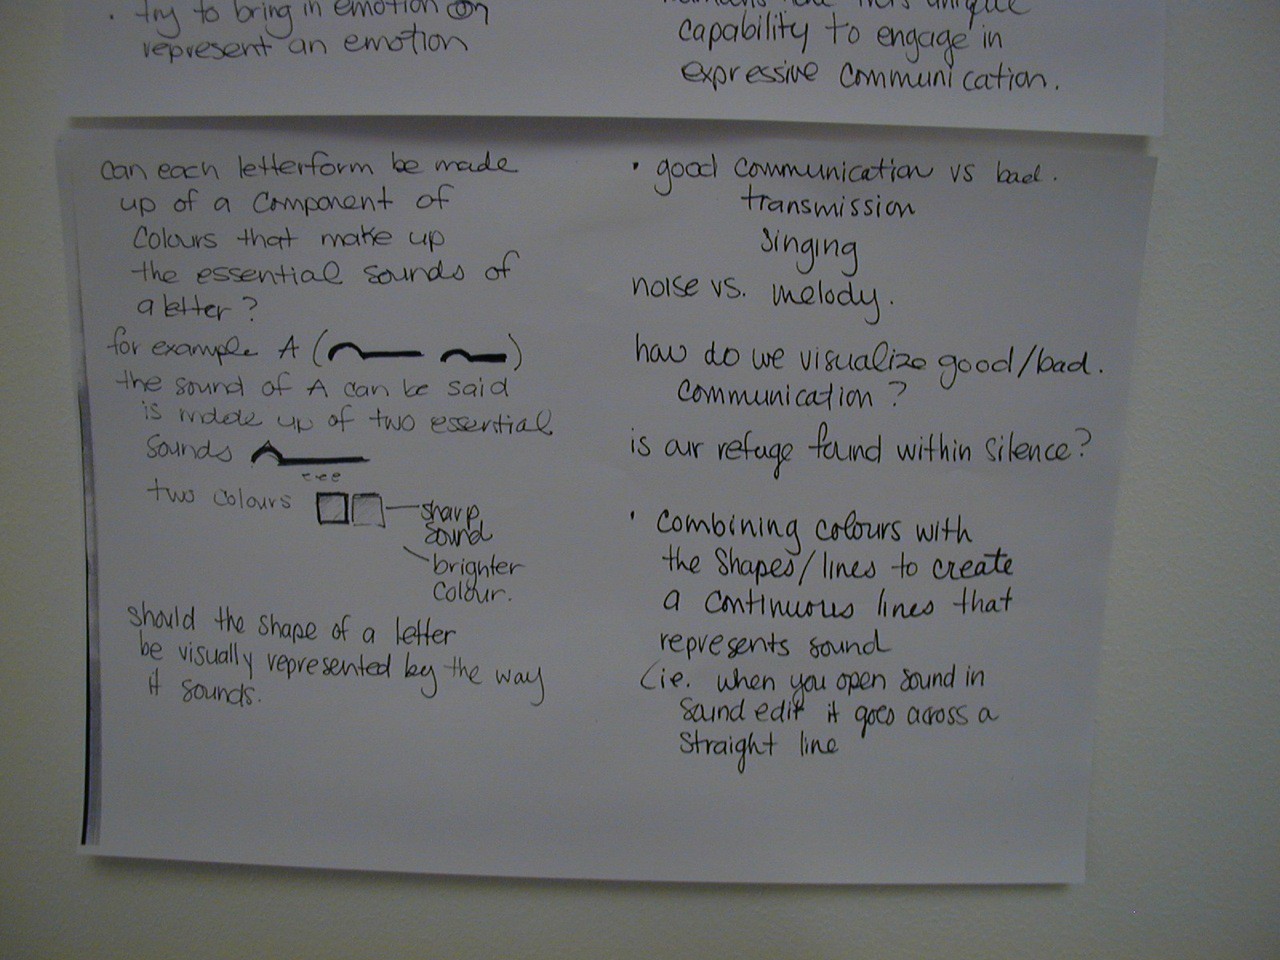 · try to bring in emotion or
represent an emotion
unique
capability to engage in
expressive communication.
can each letterform be made
up of a component of
colours that make up
the essential sounds of
a letter?
for example A ( )
the sound of A can be said
is made up of two essential
sounds
eee
two colours
sharp
sound
brighter
colour.
should the shape of a letter
be visually represented by the way
it sounds.
· good communication vs bad.
transmission
singing
noise vs. melody.
how do we visualize good/bad.
communication?
is our refuge found within silence?
· combining colours with
the shapes/lines to create
a continuous lines that
represents sound
(ie. when you open sound in
sound edit it goes across a
straight line